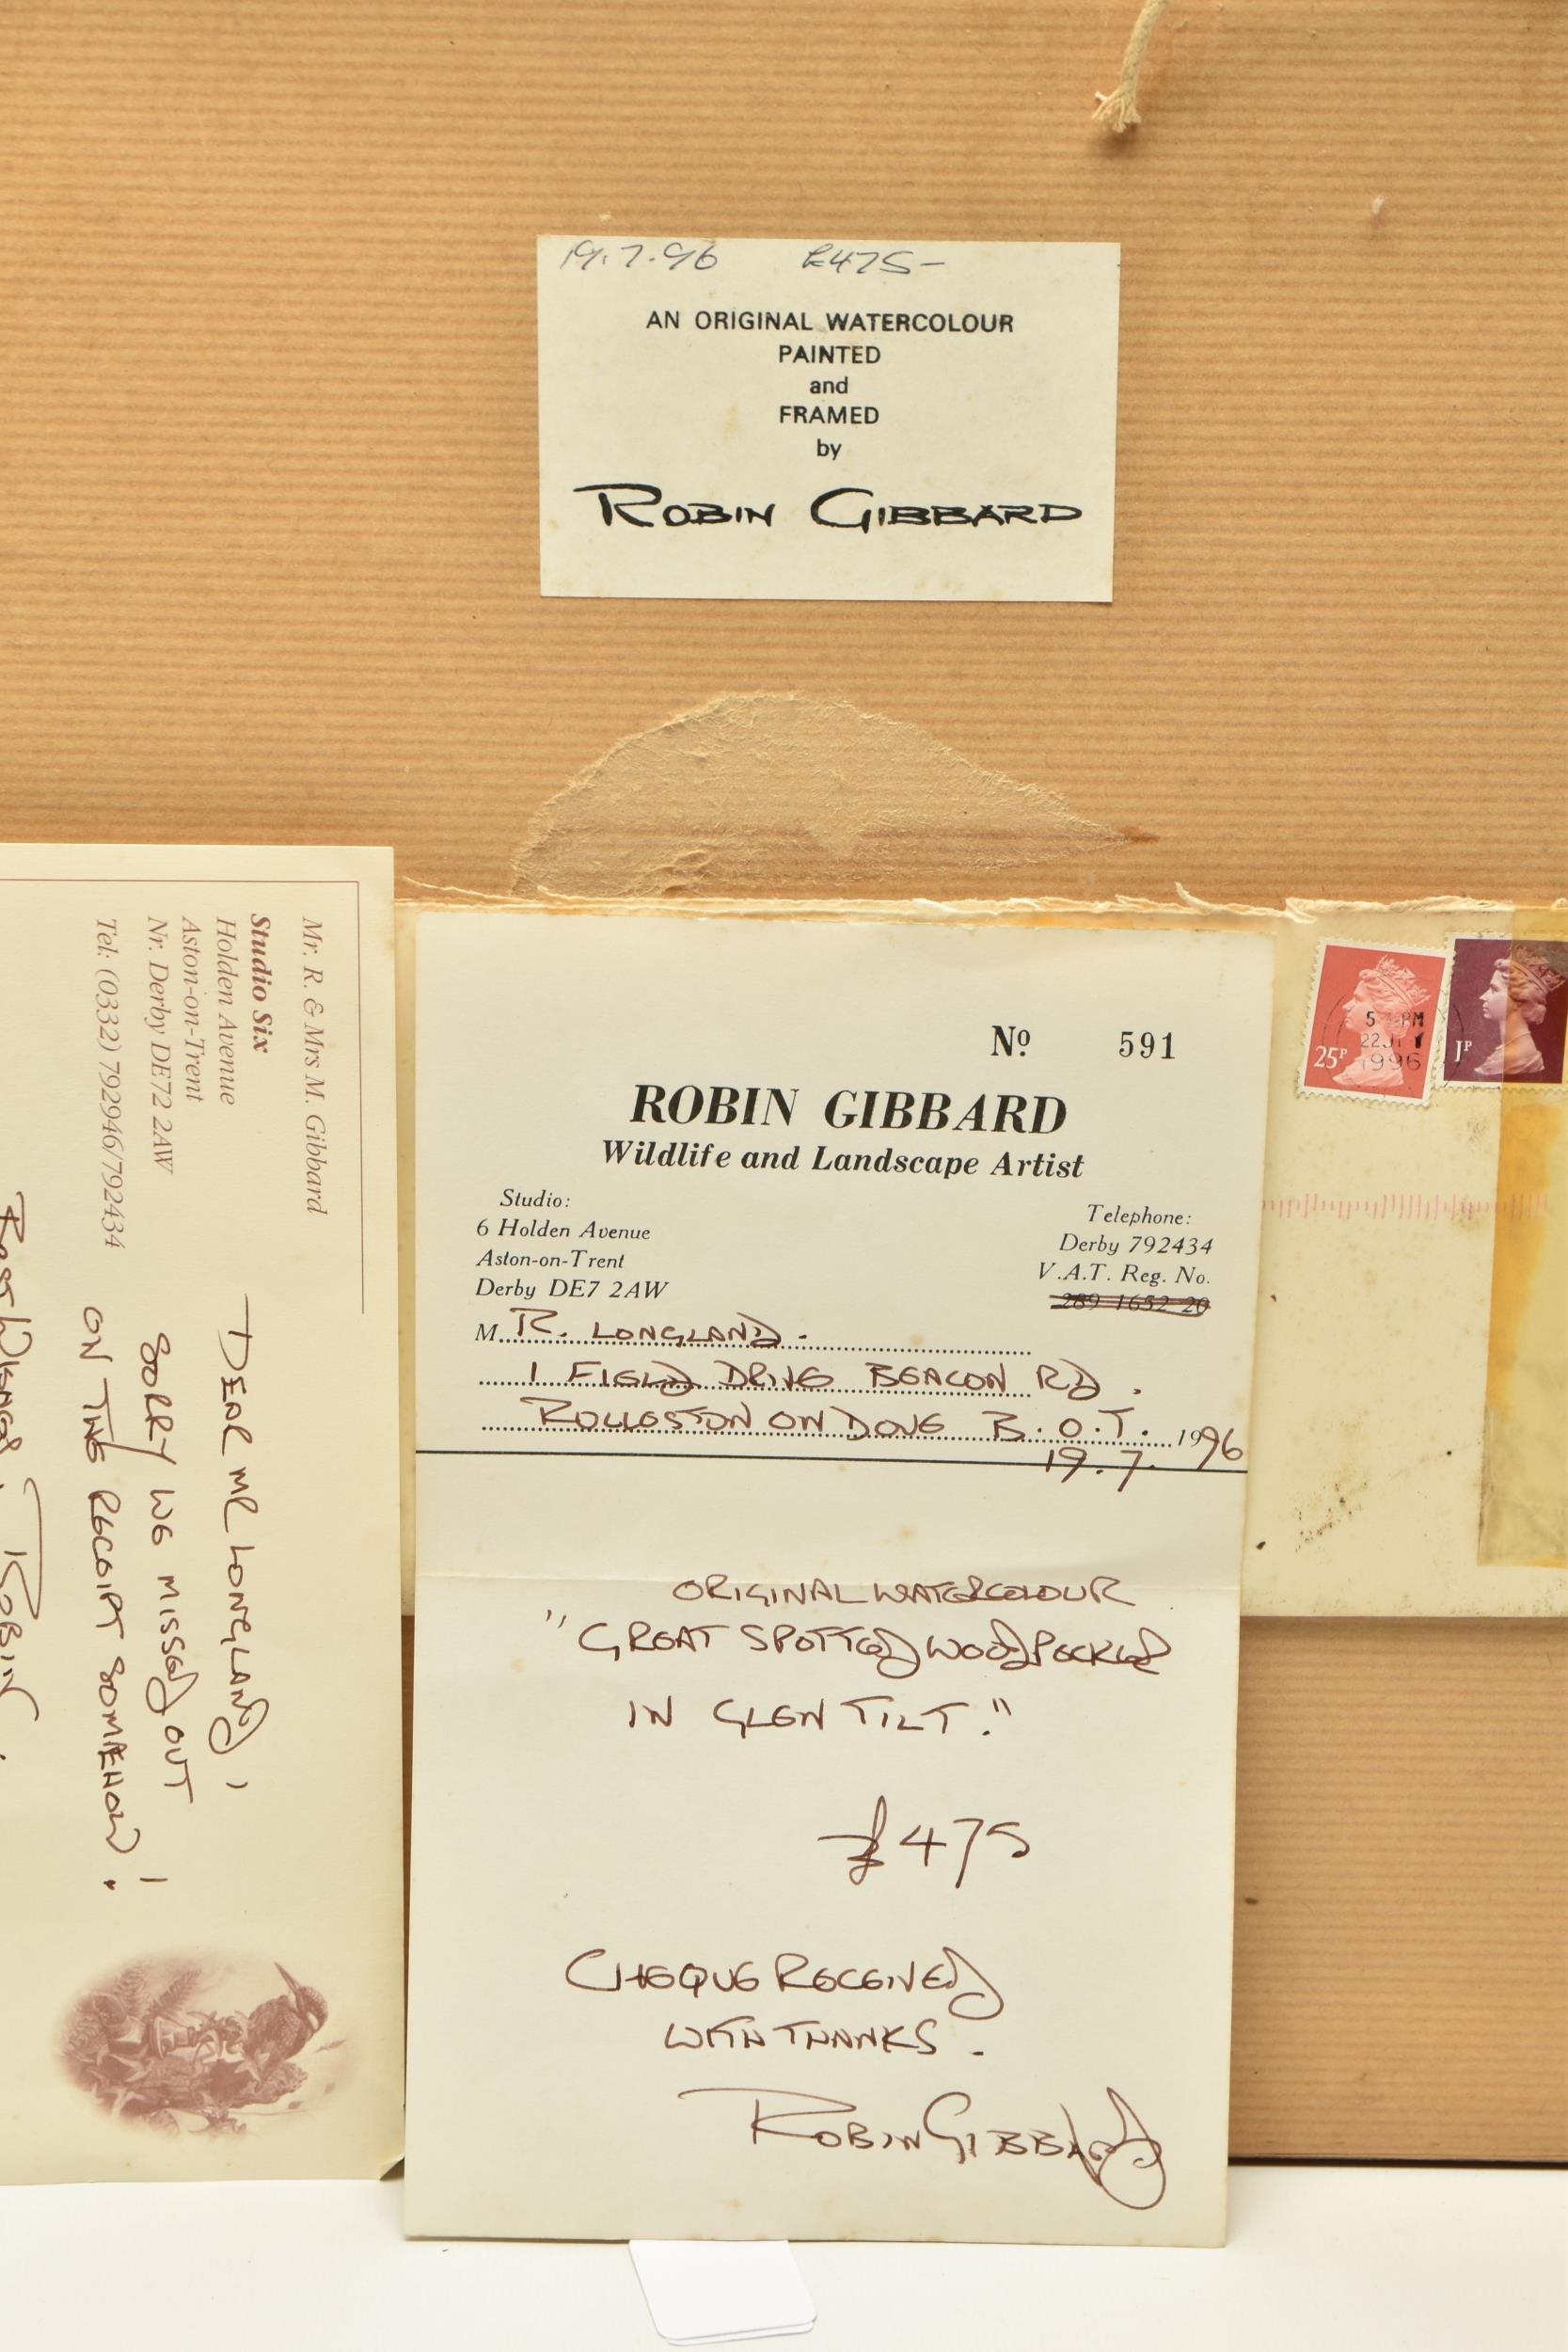 19.7.96 £475-
AN ORIGINAL WATERCOLOUR
PAINTED
and
FRAMED
by
ROBIN GIBBARD
Mr. R. & Mrs M. Gibbard
Studio Six
Holden Avenue
Aston-on-Trent
Nr. Derby DE72 2AW
Tel: (0332) 792946/792434
DEAR MR LONGLAND,
SORRY WE MISSED OUT
ON THE RECEIPT SOMEHOW!
BEST WISHES. ROBIN.
Nº 591
ROBIN GIBBARD
Wildlife and Landscape Artist
Studio:
6 Holden Avenue
Aston-on-Trent
Derby DE7 2AW
Telephone:
Derby 792434
V.A.T. Reg. No.
289 1652 20
M R. LONGLAND.
1 FIELD DRIVE BEACON RD.
ROLLESTON ON DOVE B.O.T. 1996
19.7.
ORIGINAL WATERCOLOUR
"GREAT SPOTTED WOODPECKER
IN GLEN TILT."
£475
CHEQUE RECEIVED
WITH THANKS.
ROBIN GIBBARD
25P
1P
PM
22
1996